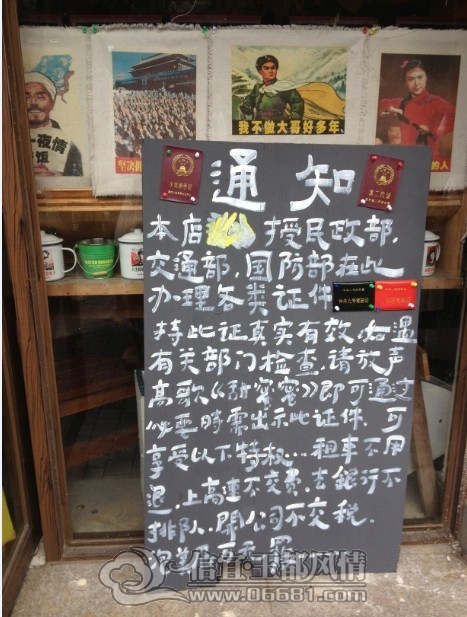 一夜情
饭
坚决
我不做大哥好多年、
的人
通知
本店 授民政部、
交通部、国防部在此
办理各类证件
持此证真实有效，如遇
有关部门检查，请放声
高歌《甜蜜蜜》即可通过
必要時需出示此证件、可
享受以下特权…租車不用
退、上高速不交费、去銀行不
排队、開公司不交税、
信宜·玉都风情
www.06681.com